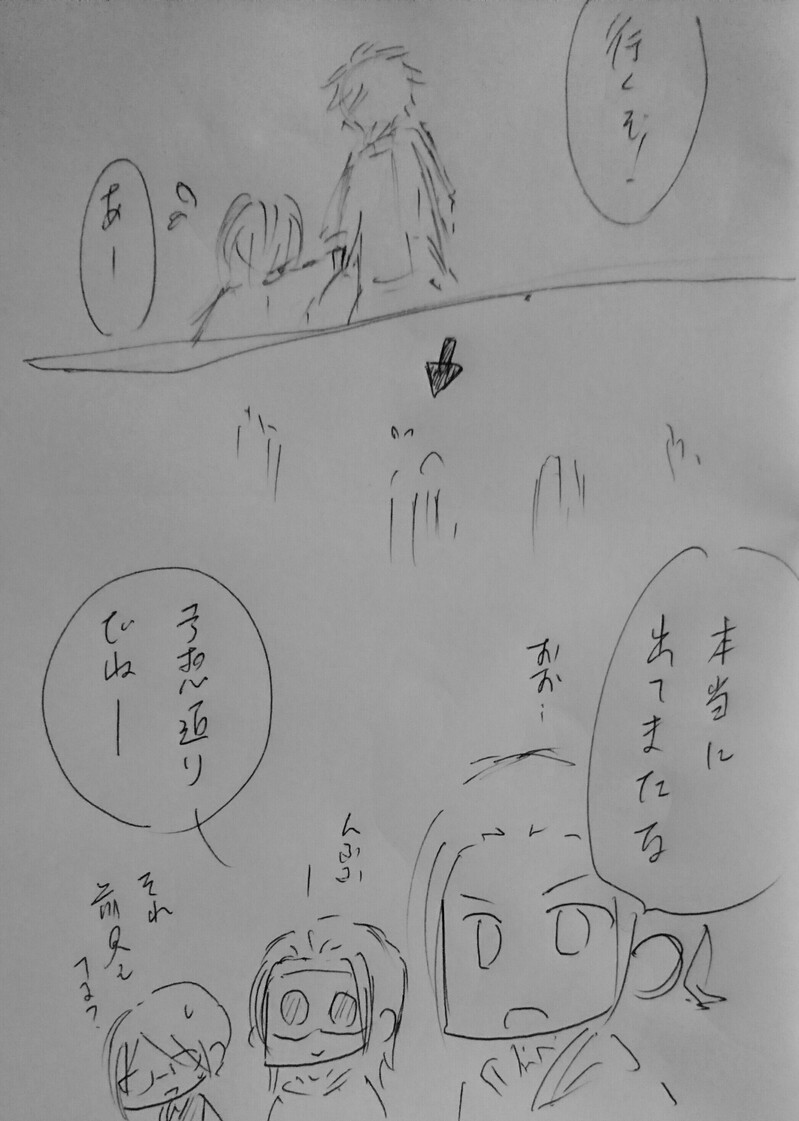 行くぞ!
あー
本当に
出てきたな
おお…
予想通り
だねー
んふふー
それ
前見え
てる?